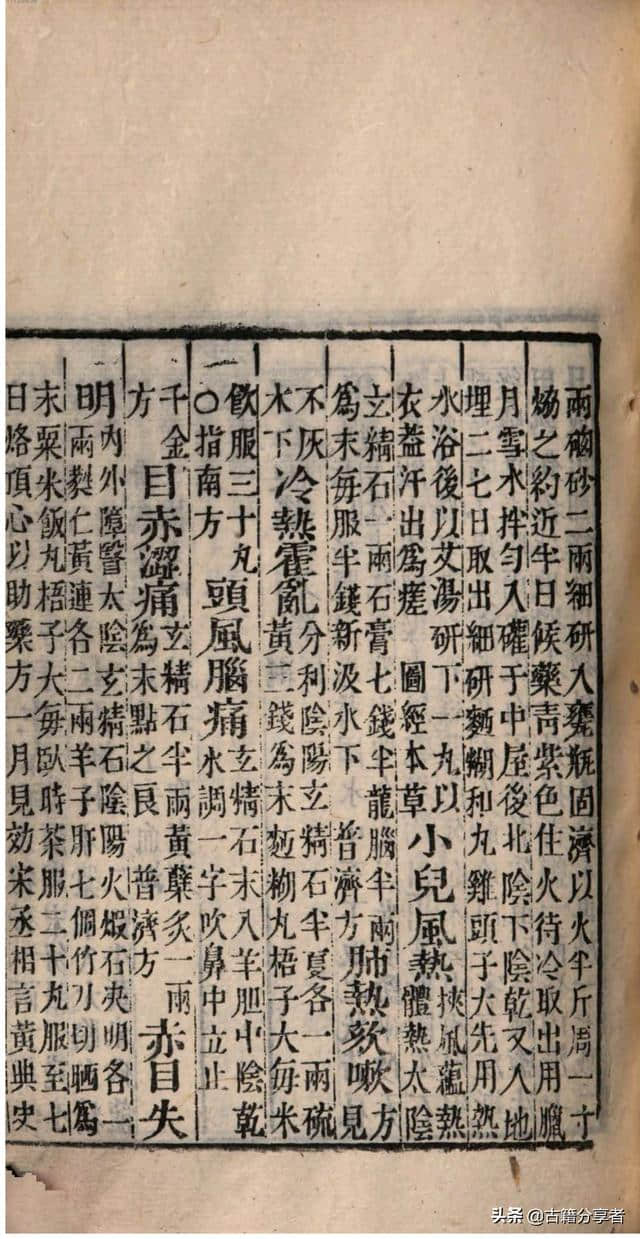 兩硇砂二兩細研入甕瓶固濟以火半斤周一寸
煸之約近半日候藥青紫色住火待冷取出用臘
月雪水拌勻入礶于中屋後北陰下陰乾又入地
埋二七日取出細研麪糊和丸雞頭子大先用熱
水浴後以艾湯研下一丸以
衣葢汗出爲瘥 圖經本草
小兒風熱
挾風蘊熱
體熱太陰
玄精石一兩石膏七錢半龍腦半兩
爲末每服半錢新汲水下 普濟方
肺熱欬嗽
方
見
不灰
木下
冷熱霍亂
分利陰陽玄精石半夏各一兩硫
黃三錢爲末麪糊丸梧子大每米
飲服三十丸
〇指南方
頭風腦痛
玄精石末入羊胆中陰乾
水調一字吹鼻中立止
千金
方
目赤澀痛
玄精石半兩黃蘗炙一兩
爲末點之良 普濟方
赤目失
明
內外障瞖太陰玄精石陰陽火煅石决明各一
兩蕤仁黃連各二兩羊子肝七個竹刀切晒爲
末粟米飯丸梧子大每臥時茶服二十丸服至七
日烙頂心以助藥方一月見効宋丞相言黃典史
头条 @古籍分享者